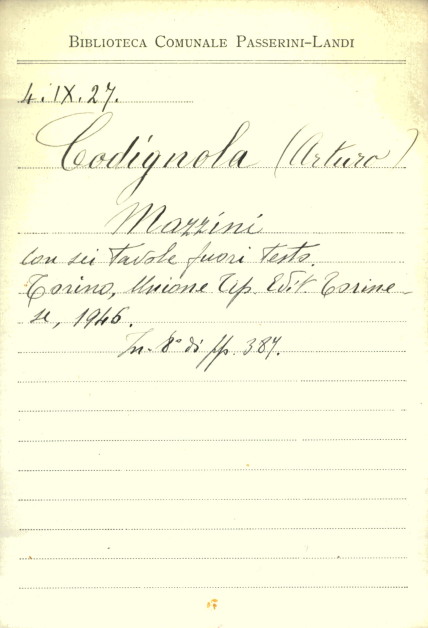 BIBLIOTECA COMUNALE PASSERINI-LANDI
4. IX. 27.
Codignola (Arturo)
Mazzini
con sei tavole fuori testo.
Torino, Unione Tip. Edit. Torine-
se, 1946.
In-8° di pp. 387.